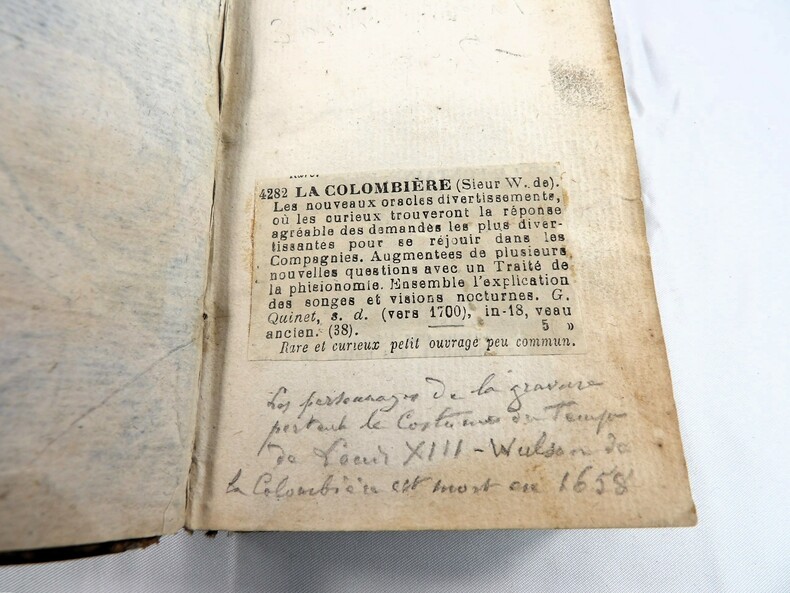 4282 LA COLOMBIÈRE (Sieur W. de).
Les nouveaux oracles divertissements,
où les curieux trouveront la réponse
agréable des demandes les plus diver-
tissantes pour se réjouir dans les
Compagnies. Augmentées de plusieurs
nouvelles questions avec un Traité de
la phisionomie. Ensemble l'explication
des songes et visions nocturnes. G.
Quinet, s. d. (vers 1700), in-18, veau
ancien. (38). 5 »
Rare et curieux petit ouvrage peu commun.
Les personnages de la gravure
portent le Costumes du Temps
de Louis XIII - Wulson de
la Colombière est mort en 1658